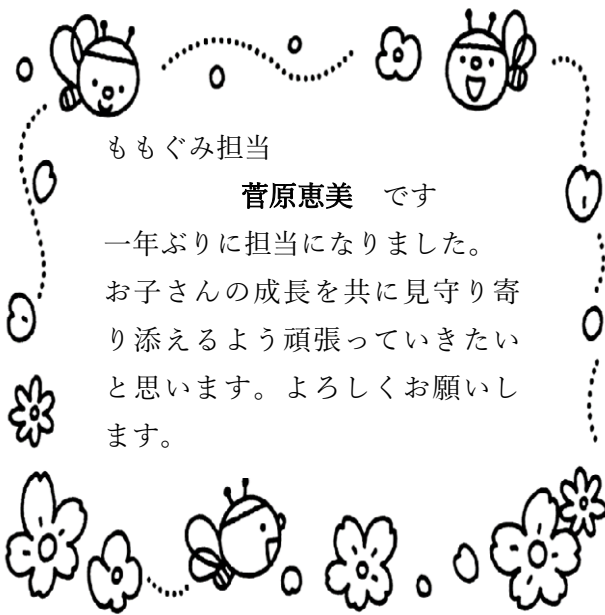 ももぐみ担当
菅原恵美　です
一年ぶりに担当になりました。
お子さんの成長を共に見守り寄
り添えるよう頑張っていきたい
と思います。よろしくお願いし
ます。